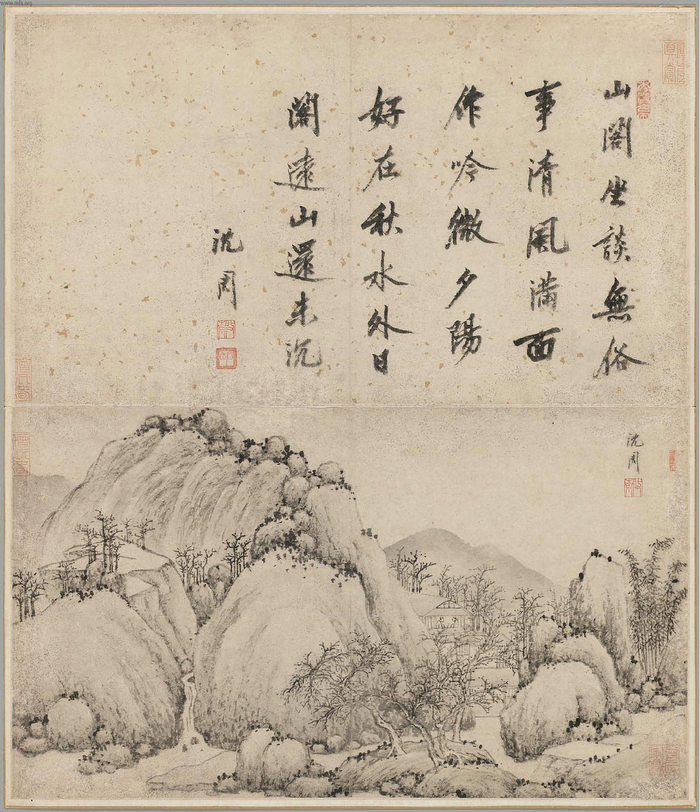 山閣坐談無俗
事清風滿面
作吟微夕陽
好在秋水外日
闌遠山還未沉
沈周
沈周